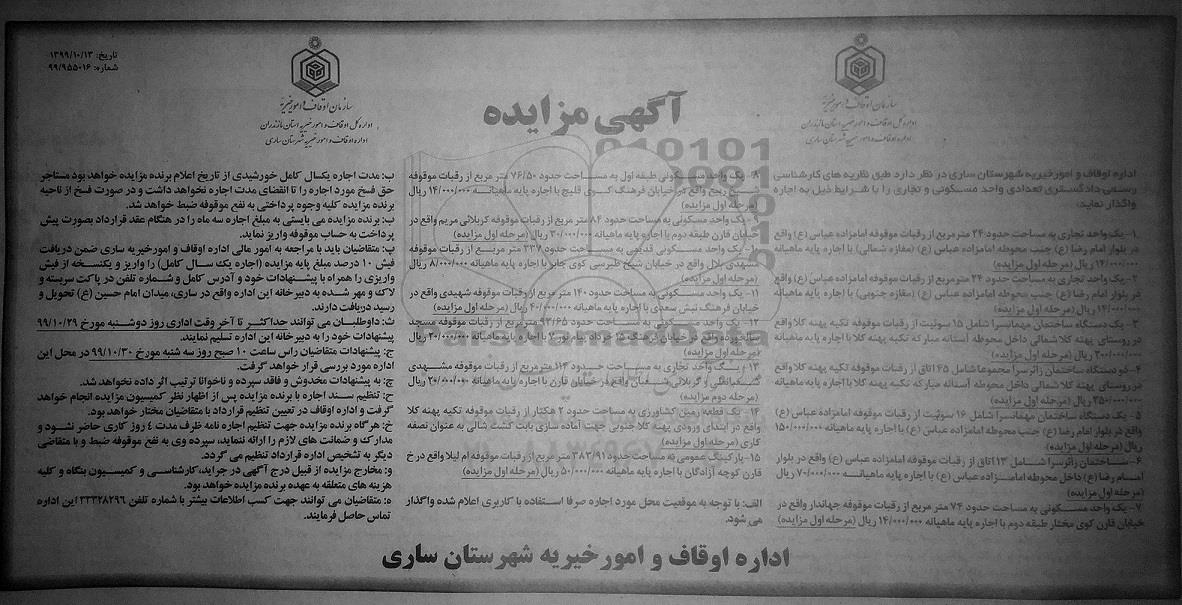 تاریخ: ۱۳۹۹/۱۰/۱۳
شماره: ۹۹/۹۵۵۰۱۶
سازمان اوقاف و امور خیریه
اداره کل اوقاف و امور خیریه استان مازندران
اداره اوقاف و امور خیریه شهرستان ساری
آگهی مزایده
سازمان اوقاف و امور خیریه
اداره کل اوقاف و امور خیریه استان مازندران
اداره اوقاف و امور خیریه شهرستان ساری
اداره اوقاف و امور خیریه شهرستان ساری در نظر دارد طبق نظریه های کارشناسی
رسمی دادگستری تعدادی واحد مسکونی و تجاری را با شرایط ذیل به اجاره
واگذار نماید:
۱- یک واحد تجاری به مساحت حدود ۲۴ متر مربع از رقبات موقوفه امامزاده عباس (ع) واقع
در بلوار امام رضا (ع) جنب محوطه امامزاده عباس (ع) (مغازه شمالی) با اجاره پایه ماهیانه
۱۴/۰۰۰/۰۰۰ ریال (مرحله اول مزایده)
۲- یک واحد تجاری به مساحت حدود ۲۴ متر مربع از رقبات موقوفه امامزاده عباس (ع) واقع
در بلوار امام رضا (ع) جنب محوطه امامزاده عباس (ع) (مغازه جنوبی) با اجاره پایه ماهیانه
ریال (مرحله اول مزایده)
یک دستگاه ساختمان مهمانسرا شامل ۱۵ سوئیت از رقبات موقوفه تکیه پهنه کلا واقع
در روستای پهنه کلا شمالی داخل محوطه آستانه مبارکه تکیه پهنه کلا با اجاره پایه ماهیانه
۲۰۰/۰۰۰/۰۰۰ ریال (مرحله اول مزایده)
۴- دو دستگاه ساختمان زائرسرا مجموعا شامل ۴۵ اتاق از رقبات موقوفه تکیه پهنه کلا واقع
در روستای پهنه کلا شمالی داخل محوطه آستانه مبارکه تکیه پهنه کلا با اجاره پایه ماهیانه
۲۵۰/۰۰۰/۰۰۰ ریال (مرحله اول مزایده)
۵- یک دستگاه ساختمان مهمانسرا شامل ۱۶ سوئیت از رقبات موقوفه امامزاده عباس (ع)
واقع در بلوار امام رضا (ع) جنب محوطه امامزاده عباس (ع) با اجاره پایه ماهیانه ۱۵۰/۰۰۰/۰۰۰
ریال (مرحله اول مزایده)
۶- ساختمان زائرسرا شامل ۱۳ اتاق از رقبات موقوفه امامزاده عباس (ع) واقع در بلوار
امام رضا (ع) داخل محوطه امامزاده عباس (ع) با اجاره پایه ماهیانه ۷۰/۰۰۰/۰۰۰ ریال
(مرحله اول مزایده)
۷- یک واحد مسکونی به مساحت حدود ۷۴ متر مربع از رقبات موقوفه جهاندار واقع در
خیابان قارن کوی مختار طبقه دوم با اجاره پایه ماهیانه ۱۴/۰۰۰/۰۰۰ ریال (مرحله اول مزایده)
۸- یک واحد مسکونی طبقه اول به مساحت حدود ۷۶/۵۰ متر مربع از رقبات موقوفه
شیخ ربیع واقع در خیابان فرهنگ کوی قلیچ با اجاره پایه ماهیانه ۱۴/۰۰۰/۰۰۰ ریال
(مرحله اول مزایده)
۹- یک واحد مسکونی به مساحت حدود ۸۴ متر مربع از رقبات موقوفه کربلائی مریم واقع در
خیابان قارن طبقه دوم با اجاره پایه ماهیانه ۳۰/۰۰۰/۰۰۰ ریال (مرحله اول مزایده)
۱۰- یک واحد مسکونی قدیمی به مساحت حدود ۳۳۷ متر مربع از رقبات موقوفه
مشهدی بلال واقع در خیابان شیخ طبرسی کوی جابر با اجاره پایه ماهیانه ۸/۰۰۰/۰۰۰ ریال
(مرحله اول مزایده)
۱۱- یک واحد مسکونی به مساحت حدود ۱۴۰ متر مربع از رقبات موقوفه شهیدی واقع در
خیابان فرهنگ نبش سعدی با اجاره پایه ماهیانه ۴۰/۰۰۰/۰۰۰ ریال (مرحله اول مزایده)
۱۲- یک واحد مسکونی به مساحت حدود ۹۳/۶۵ متر مربع از رقبات موقوفه مسجد
سالخورده واقع در خیابان فرهنگ ۱۵ خرداد پیام نور ۷ با اجاره پایه ماهیانه ۲۰/۰۰۰/۰۰۰ ریال
(مرحله اول مزایده)
۱۳- یک واحد تجاری به مساحت حدود ۱۱۴ متر مربع از رقبات موقوفه مشهدی
شعبانعلی و کربلائی شعبان واقع در خیابان قارن با اجاره پایه ماهیانه ۲۰/۰۰۰/۰۰۰ ریال
(مرحله دوم مزایده)
۱۴- یک قطعه زمین کشاورزی به مساحت حدود ۲ هکتار از رقبات موقوفه تکیه پهنه کلا
واقع در ابتدای ورودی پهنه کلا جنوبی جهت آماده سازی بابت کشت شالی به عنوان نصفه
کاری (مرحله اول مزایده)
۱۵- پارکینگ عمومی به مساحت حدود ۳۸۳/۹۱ متر مربع از رقبات موقوفه ام لیلا واقع در خ
قارن کوچه آزادگان با اجاره پایه ماهیانه ۵۰/۰۰۰/۰۰۰ ریال (مرحله اول مزایده)
الف: با توجه به موقعیت محل مورد اجاره صرفا استفاده با کاربری اعلام شده واگذار
می شود.
ب: مدت اجاره یکسال کامل خورشیدی از تاریخ اعلام برنده مزایده خواهد بود مستاجر
حق فسخ مورد اجاره را تا انقضای مدت اجاره نخواهد داشت و در صورت فسخ از ناحیه
برنده مزایده کلیه وجوه پرداختی به نفع موقوفه ضبط خواهد شد.
ب: برنده مزایده می بایستی به مبلغ اجاره سه ماه را در هنگام عقد قرارداد بصورت پیش
پرداخت به حساب موقوفه واریز نماید.
پ: متقاضیان باید با مراجعه به امور مالی اداره اوقاف و امورخیریه ساری ضمن دریافت
فیش ۱۰ درصد مبلغ پایه مزایده (اجاره یک سال کامل) را واریز و یکنسخه از فیش
واریزی را همراه با پیشنهادات خود و آدرس کامل و شماره تلفن در پاکت سربسته و
لاک و مهر شده به دبیرخانه این اداره واقع در ساری، میدان امام حسین (ع) تحویل و
رسید دریافت دارند.
ث: داوطلبان می توانند حداکثر تا آخر وقت اداری روز دوشنبه مورخ ۹۹/۱۰/۲۹
پیشنهادات خود را به دبیرخانه این اداره تسلیم نمایند.
ج: پیشنهادات متقاضیان راس ساعت ۱۰ صبح روز سه شنبه مورخ ۹۹/۱۰/۳۰ در محل این
اداره مورد بررسی قرار خواهد گرفت.
چ: به پیشنهادات مخدوش و فاقد سپرده و ناخوانا ترتیب اثر داده نخواهد شد.
ح: تنظیم سند اجاره با برنده مزایده پس از اظهار نظر کمیسیون مزایده انجام خواهد
گرفت و اداره اوقاف در تعیین تنظیم قرارداد با متقاضیان مختار خواهد بود.
خ: هرگاه برنده مزایده جهت تنظیم اجاره نامه ظرف مدت ۴ روز کاری حاضر نشود و
مدارک و ضمانت های لازم را ارائه ننماید، سپرده وی به نفع موقوفه ضبط و با متقاضی
دیگر به تشخیص اداره قرارداد تنظیم می گردد.
و: مخارج مزایده از قبیل درج آگهی در جراید، کارشناسی و کمیسیون بنگاه و کلیه
هزینه های متعلقه به عهده برنده مزایده خواهد بود.
ه: متقاضیان می توانند جهت کسب اطلاعات بیشتر با شماره تلفن ۳۳۳۲۸۲۹۶ این اداره
تماس حاصل فرمایند.
اداره اوقاف و امور خیریه شهرستان ساری